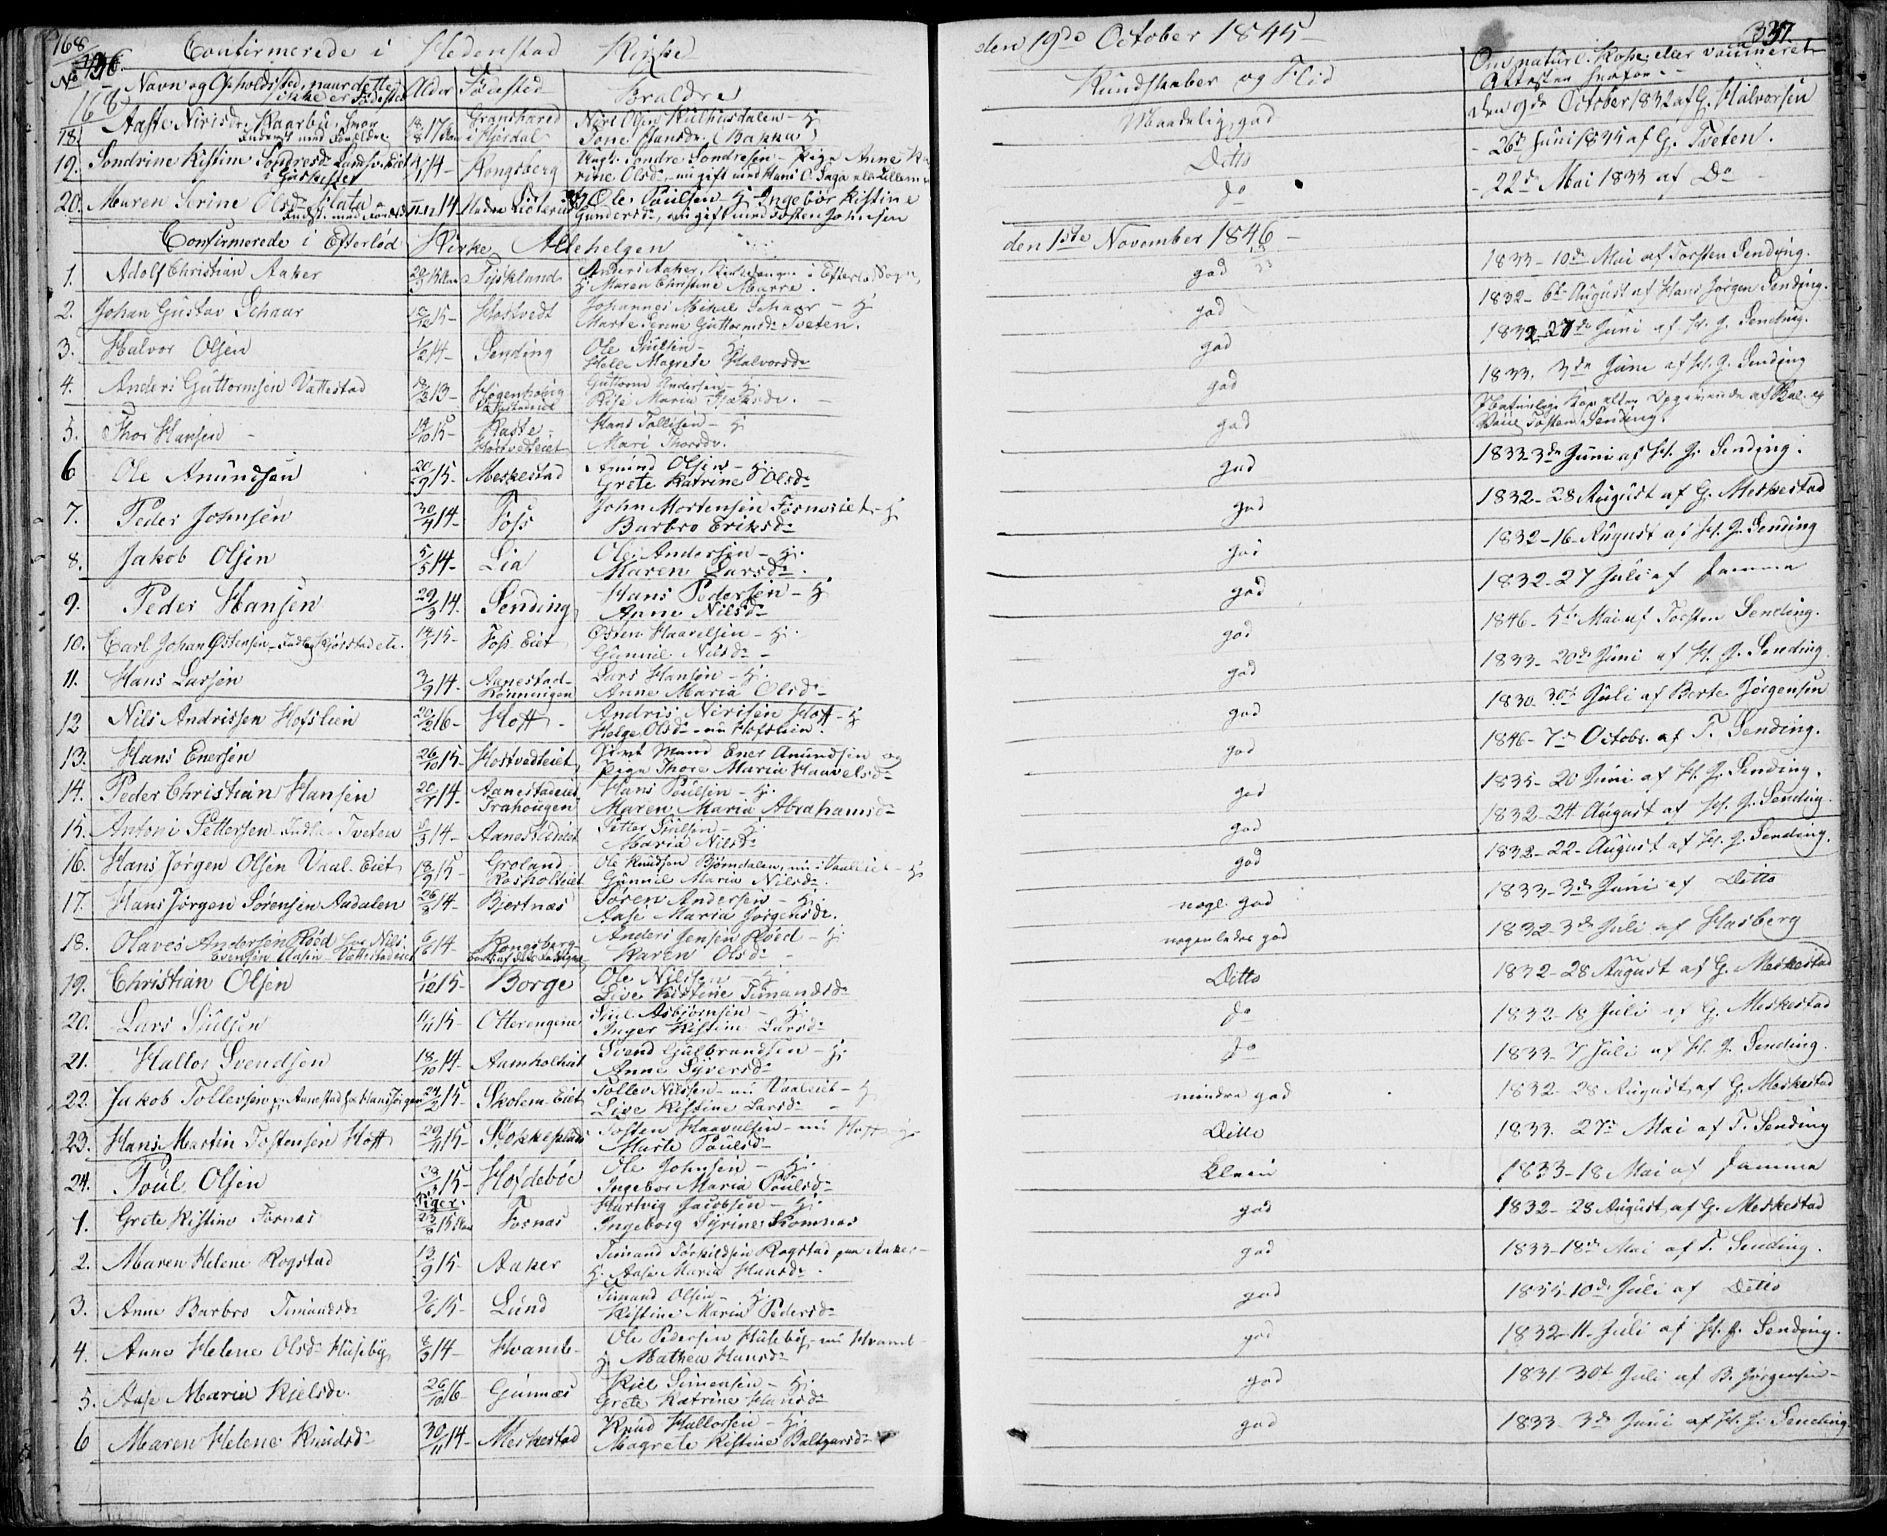 168
Confirmerede i Hedenstad Kirke
den 19de October 1845
337
No Navn og Opholdssted, naar dette ikke er Fødested Alder Fødested Forældre
Kundskaber og Flid
Om naturl. Kopper eller vaccineret Attesten
168
18. Aaste Nirisdr. Kaarbø 17 Gransherred i Hjerdal Tone Hansdr. (Bakka)
Maadelig, god
den 9de October 1832 af G. Halvorsen
19. Sondrine Kistine Sondresdr. 14 Kongsberg Ungk. Sondre Sondresen - Pige Anne Karine Olsdr. nu gift med Hans O. Saga
Ditto
- 26de Juni 1845 af G. Tveten.
20. Maren Serine Olsdr. Flata 14 Ole Poulsen - Ingebor Kistine Gundersdr. nu gift med Tosten Johnsen
do
- 22de Mai 1833 af Do
Confirmerede i Efterlød Kirke Allehelgen
den 1ste November 1846
1. Adolf Christian Aaker Anders Aaker, Kirkesanger i Efterløds Sogn, Maren Christine Marre
god
1833 - 10de Mai af Torsten Sending.
2. Johan Gustav Schaar 15 Hostvedt Johannes Mikael Schaar - Marte Serine Guttormsdr. Tveten.
god
1832 - 6te August af Hans Jørgen Sending.
3. Halvor Olsen 14 - Sending Ole Siulsen - Helle Magrete Halvorsdr.
god
1832 27de Juni af H. J. Sending.
4. Anders Guttormsen Vattestad 13 - Guttorm Andersen -
god
1833. 3de Juni af H. J. Sending
5. Thor Hansen 15 - Hostvedteiet Hans Tollesen - Mari Thorsdr.
god
Naturlige Kop. efter Opgivende af Tosten Sending.
6 Ole Amundsen 20/9 15 Meskestad Amund Olsen - Grete Katrine Olsdr.
god
1833 3de Juni af H. J. Sending.
7. Peder Johnsen 30/4 14 - Foss John Mortensen Fosnæseiet - Barbro Eriksdr.
god
1832 - 28 August af G. Meskestad
8. Jakob Olsen 5/5 14 - Lia Ole Andersen - Maren Larsdr.
god
1832 - 16 August af H. J. Sending
9. Peder Hansen 29/3 14. Sending Hans Pedersen - Anne Nilsdr.
god
1832 - 27 Juli af samme
10. Carl Johan Østensen 15 - Foss Eiet Østen Haavelsen - Gunnil Nilsdr. -
god
1846 - 5te Mai af Torsten Sending.
11. Hans Larsen 3/9 14 - Aanestad Rønningen Lars Hansen - Anne Maria Olsdr.
god
1833 - 20de Juni af H. J. Sending
12 Nils Andrissen Hofslien 20/2 16 - Hoff - Andris Nirisen Hoff - Helge Olsdr. nu Hofslien.
god
1830 30te Juli af Berte Jørgensen
13. Hans Enersen 26/10 15 - Hostvedteiet Givt Mand Ener Amundsen og Pigen Thore Maria Haavelsdr.
god
1846 - 7de Octobr. af T. Sending.
14. Peder Christian Hansen 20/7 14 Aanestadeiet Trahougen Hans Poulsen - Maren Maria Abrahamsdr.
god
1835 - 20 Juni af H. J. Sending.
15. Antoni Pettersen Tveten 14 - Aanestadeiet Petter Siulsen - Maria Nilsdr.
god
1832 - 24 August af H. J. Sending.
16. Hans Jørgen Olsen Vaal. Eiet 18/9 15 - Groland Roskolteiet Ole Knudsen Bjørndalen, nu i Vaaleiet - Gunnil Maria Nilsdr.
god
1832 - 22 August af H. J. Sending.
17. Hans Jørgen Sørensen Aadalen 26/3 14 - Bjertnæs Søren Andersen - Aase Maria Jørgensdr.
nogl. god
1833 - 3de Juni af Ditto
18. Olaves Andersen Røed 14 Kongsberg Anders Jensen Røed - Karen Olsdr. -
nogenledes god
1832 3de Juli af Hasberg
19. Christian Olsen 1/12 15 - Borge Ole Nilssen - Live Kristine Timandsdr.
Ditto
1832 - 28 August af G. Meskestad
20. Lars Siulsen 15 - Otterengene Siul Asbjørnsen - Inger Kistine Larsdr.
do
1832 - 18 Juli af G. Meskestad
21. Hallor Svendsen 18/10 14 - Aamholteiet Svend Gulbrandsen - Anne Syversdr.
do
1833 - 7 Juli af H. J. Sending.
22. Jakob Tollersen 24/2 15 - Skolem Eiet Tollev Nilssen - nu Vaaleiet - Live Kistine Larsdr. -
mindre god
1832 - 28 August af G. Meskestad
23. Hans Martin Tostensen Hoff 29/11 15 - Stokkeplads Tosten Haavelsen - nu Hoff - Marte Poulsdr.
Ditto
1833. 27de Mai af T. Sending
24. Poul Olsen 15 - Hofdebøe Ole Johnsen - Ingebor Maria Poulsdr.
1833 - 18 Mai af samme
Piger.
1. Grete Kistine Fosnæs 23/8 15 Fosnæs Hartvig Jacobsen - Ingeborg Syrine Komnæs
god
1832 - 28 August af G. Meskestad
2. Maren Helene Rogstad 13/9 15 - Aaker Timand Torkildsen Rogstad paa Aaker - Aase Maria Hansdr.
god
1833 - 18de Mai af T. Sending.
3. Anne Barbro Timandsdr. 15 - Lund Timand Olsen - Kistine Maria Pedersdr.
god
1835 - 10de Juli af Ditto
4. Anne Helene Olsdr. Huseby 8/3 14 - Hvamb - Ole Pedersen Huseby, nu Hvamb - Mathea Hansdr.
god
1832 - 11. Juli af H. J. Sending.
5. Aase Maria Kielsdr. 26/10 16 - Gunnæs Kiel Simensen - Grete Katrine Hansdr.
god
1831 30te Juli af B. Jørgensen -
6 Maren Helene Knudsdr. 30/11 14 - Meskestad Knud Hallorsen - Magrete Kistine Baltzersdr.
god
1833 - 3de Juni af H. J. Sending